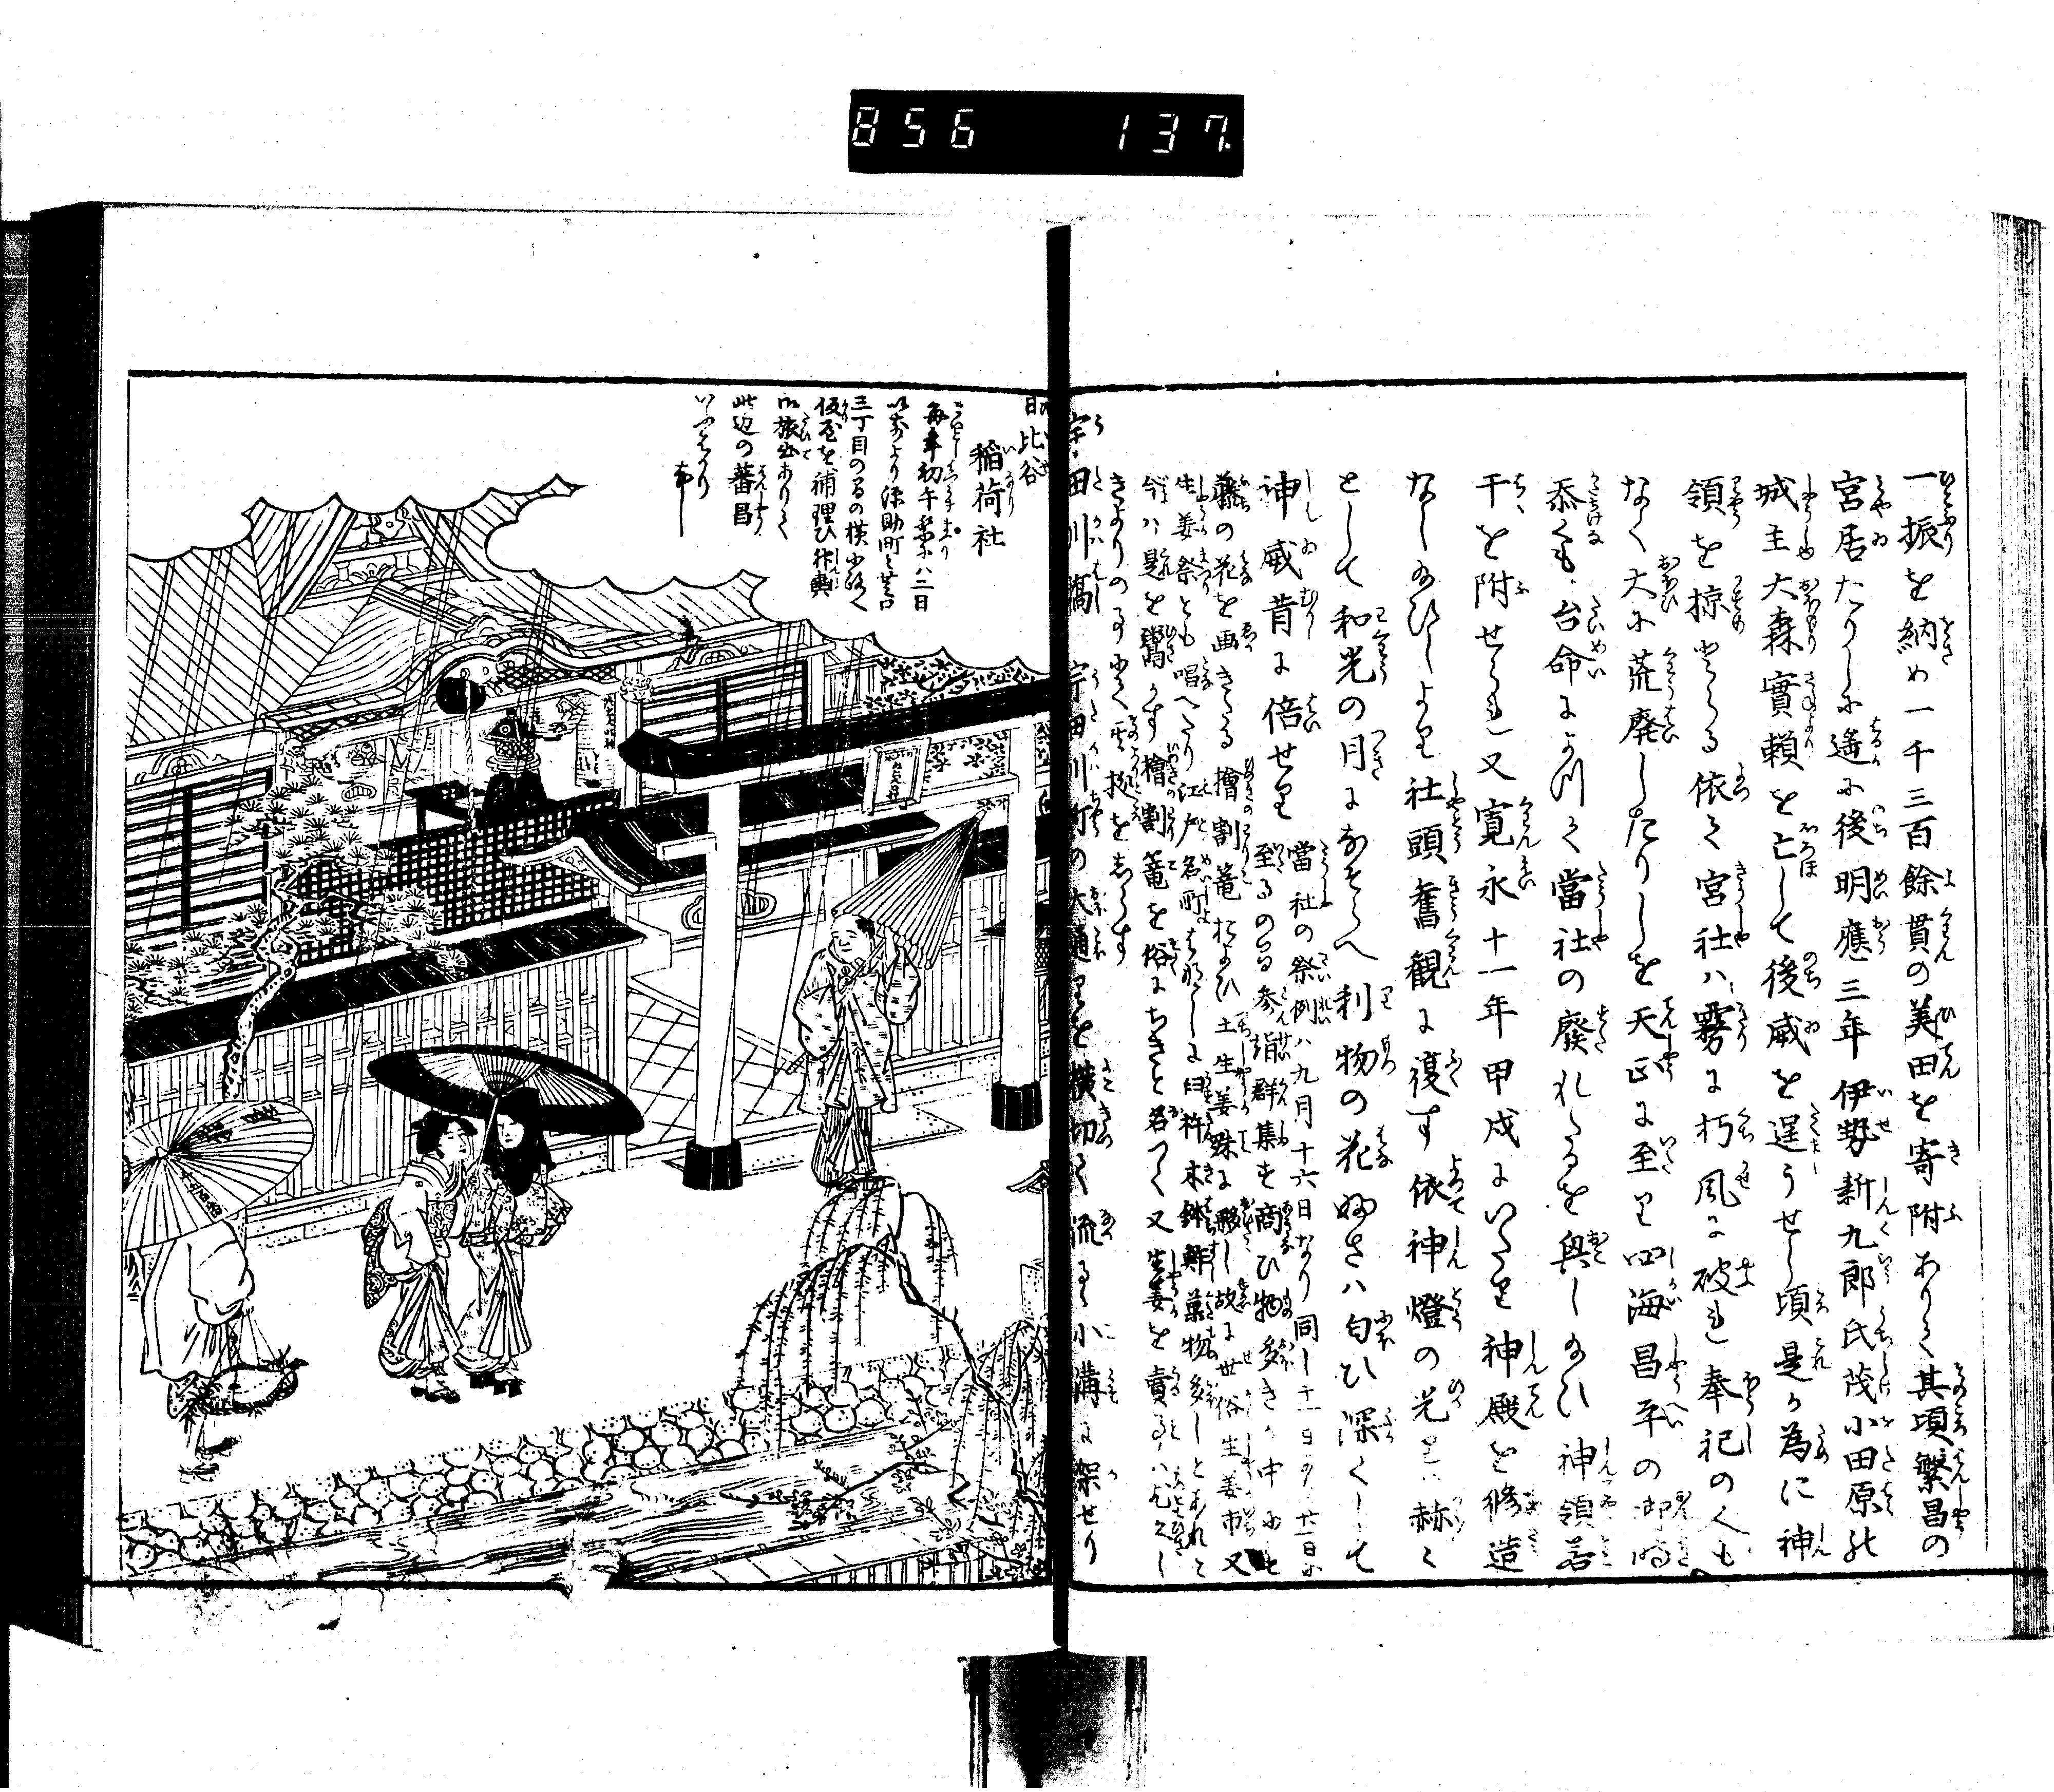 856 137.
一振を納め一千三百餘貫の美田を寄附ありて其頃繁昌の
宮居たりしに遙に後明應三年伊勢新九郎氏茂小田原の
城主大森實頼を亡して後威を逞うせし頃是か為に神
領を掠めらる依て宮社ハ霧に朽風に破れ奉祀の人も
なく大に荒廢したりしを天正に至り四海昌平の御時
忝くも台命によつて當社の廢れたるを興し給ひ神領若
干を附せられ又寛永十一年甲戌にいたり神殿を修造
なし給ひしより社頭舊観に復す依神燈の光は赫く
として和光の月になそらへ利物の花ふさハ匂ひ深くして
神威昔に倍せり
當社の祭例ハ九月十六日なり同し十一日より廿一日に
至るの間参詣群集す商ひ物多きか中にも
藤の花を画きたる檜割篭および土生姜殊に夥し故に世俗生姜市又
生姜祭とも唱へたり江戸名所はなしに臼杵木鉢鮓菓物多しとあれと
今ハ是を鬻かす檜割篭を俗にちきと名つく又生姜を賣る
宇田川橋 宇田川町の大通りを横切て流るゝ小溝に架せり
日比谷
稲荷社
毎年初午祭ハ二日
以前より源助町と芝口
三丁目の間の横小路へ
仮屋を補理ひ神輿
御旅出ありて
此辺の蕃昌
いふはかり
なし